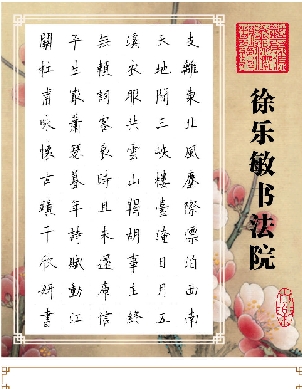 支離東北風塵際漂泊西南
天地間三峽樓臺淹日月五
溪衣服共雲山羯胡事主終
無賴詞客哀時且未還庾信
平生最蕭瑟暮年詩賦動江
關杜甫詠懷古蹟于欣妍書
徐乐敏书法院